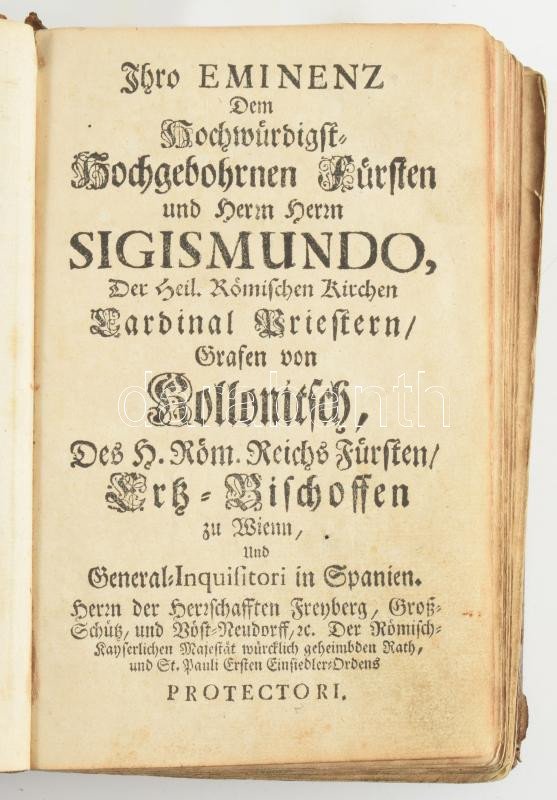 Ihro EMINENZ
Dem
Hochwürdigst-
Hochgebohrnen Fürsten
und Herrn Herrn
SIGISMUNDO,
Der Heil. Römischen Kirchen
Cardinal Priestern/
Grafen von
Kollonitsch,
Des H. Röm. Reichs Fürsten/
Ertz-Bischoffen
zu Wienn,
Und
General-Inquisitori in Spanien.
Herrn der Herrschafften Freyberg, Groß-
Schütz, und Vöst-Neudorff, ꝛc. Der Römisch-
Kayserlichen Majestät würcklich geheimbden Rath,
und St. Pauli Ersten Einsiedler-Ordens
PROTECTORI.